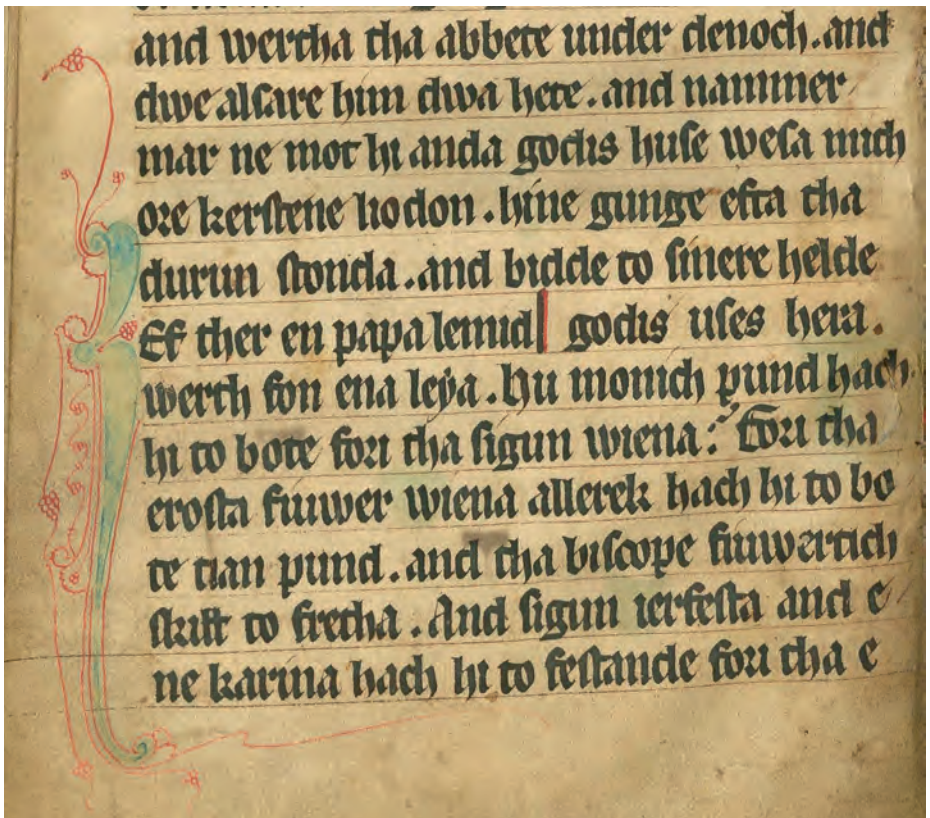 and wertha tha abbete under denoch. and
dwe alsare him dwa hete. and nammer
mar ne mot hi anda godis huse wesa mith
ore kerstene liodon. hine gunge efta tha
durun stonda. and bidde to sinere helde
Ef ther en papa lemid godis uses hera.
werth fon ena leÿa. Hu monich pund hach
hi to bote fori tha sigun wiena? Fori tha
erosta fiuwer wiena allerek hach hi to bo
te tian pund. and tha biscope fiuwertich
skift to fretha. And sigun ierfesta and e
ne karina hach hi to festande fori tha e